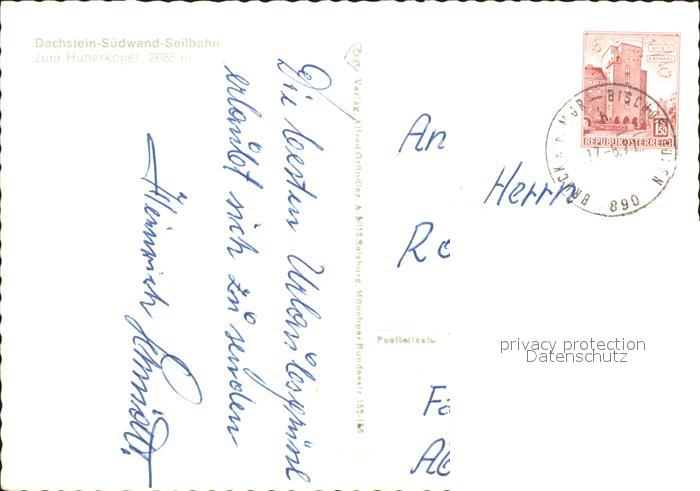 Dachstein-Südwand-Seilbahn
zum Hunerkogel, 2685 m
Die besten Urlaubsgrüße
erlaubt sich zu senden
Heinrich Schmidt
Cosy Verlag Alfred Gründler, A 5013 Salzburg, Münchner Bundesstr.
An
Herrn
Ro
Postleitzahl
Fa
WIEN
ERDBERG
1.50
REPUBLIK ÖSTERREICH
BRUCK A.D. MUR — BISCHOFSHOFEN
890
privacy protection
Datenschutz